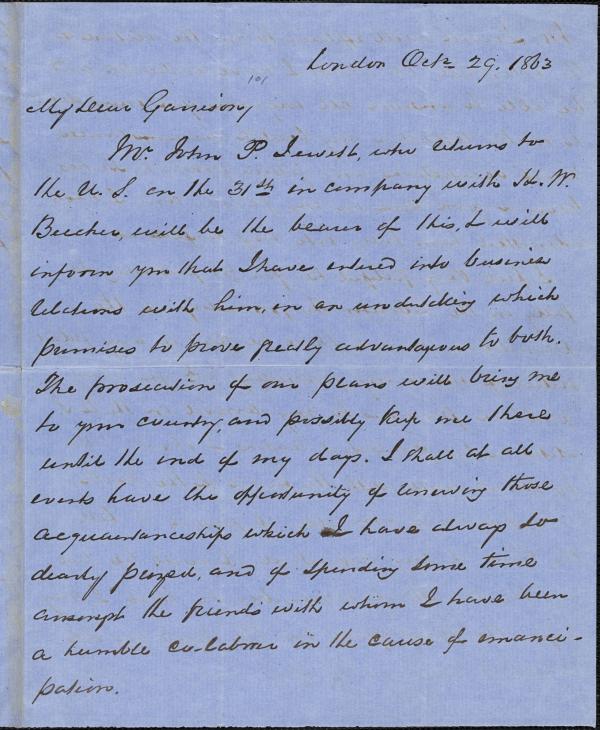 London Oct. 29. 1863
101
My Dear Garrison,
Mr. John P. Jewett, who returns to
the U. S. on the 31st in company with H. W.
Beecher, will be the bearer of this, & will
inform you that I have entered into business
relations with him, in an undertaking which
promises to prove greatly advantageous to both.
The prosecution of our plans will bring me
to your country, and possibly keep me there
until the end of my days. I shall at all
events have the opportunity of renewing those
acquaintanceships which I have always so
dearly prized, and of spending some time
amongst the friends with whom I have been
a humble co-laborer in the cause of emanci-
pation.